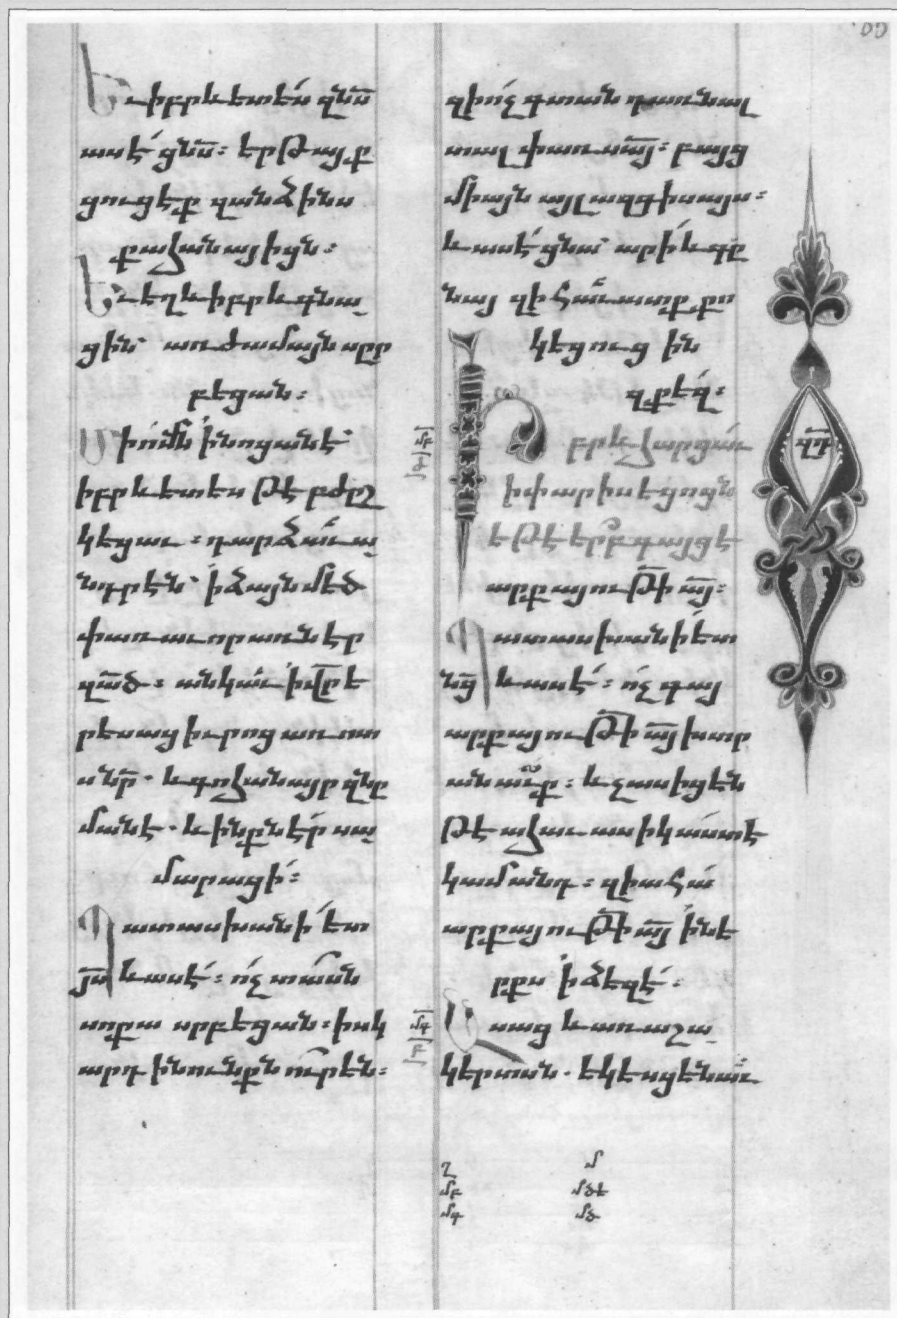 Եւ իբրև ետես զնս̅
ասէ ցնս̅։ երթայք
ցուցէք զանձինս
քահանայիցն։
Եւ եղև իբրև գնա
ցին՝ առժամայն սըր
բեցան։
Մի ոմն ի նոցանէ՝
իբրև ետես թէ բժըշ
կեցաւ։ դարձաւ ա
նդրէն՝ ի ձայն մեծ
փառաւոր առնէր
զա̅ծ։ անկաւ ի վր̅ ե
րեսաց իւրոց առ ոտ
ս նր̅. և գոհանայր զնը
մանէ. և ինքն էր սա
մարացի։
Պատասխանի ետ
յս̅ և ասէ։ ոչ տասն
սոքա սրբեցան։ իսկ
արդ ինունքն ուր են։
զի ոչ գտան դառնալ
տալ փառս ա̅յ։ բայց
միայն այլազգիս այս։
և ասէ ցնա՝ արի և գը
նայ զի հաւատք քո
կեցուց ին
զքեզ։
Իբրև հարցաւ
ի փարիսեցոցն
եթէ երբ գայցէ
արքայութի̅ ա̅յ։
Պատասխանի ետ
նց̅ և ասէ։ ոչ գայ
արքայութի̅ ա̅յ խտր
անաւք։ և չասիցեն
թէ ահաւասիկ աստ է
կամ անդ։ զի ահա
արքայութի̅ ա̅յ ի նե
րքս ի ձեզ է։
Ասաց և առ աշա
կերտսն. եկեսցեն աւ
մ
մբ մծէ
մգ մծ